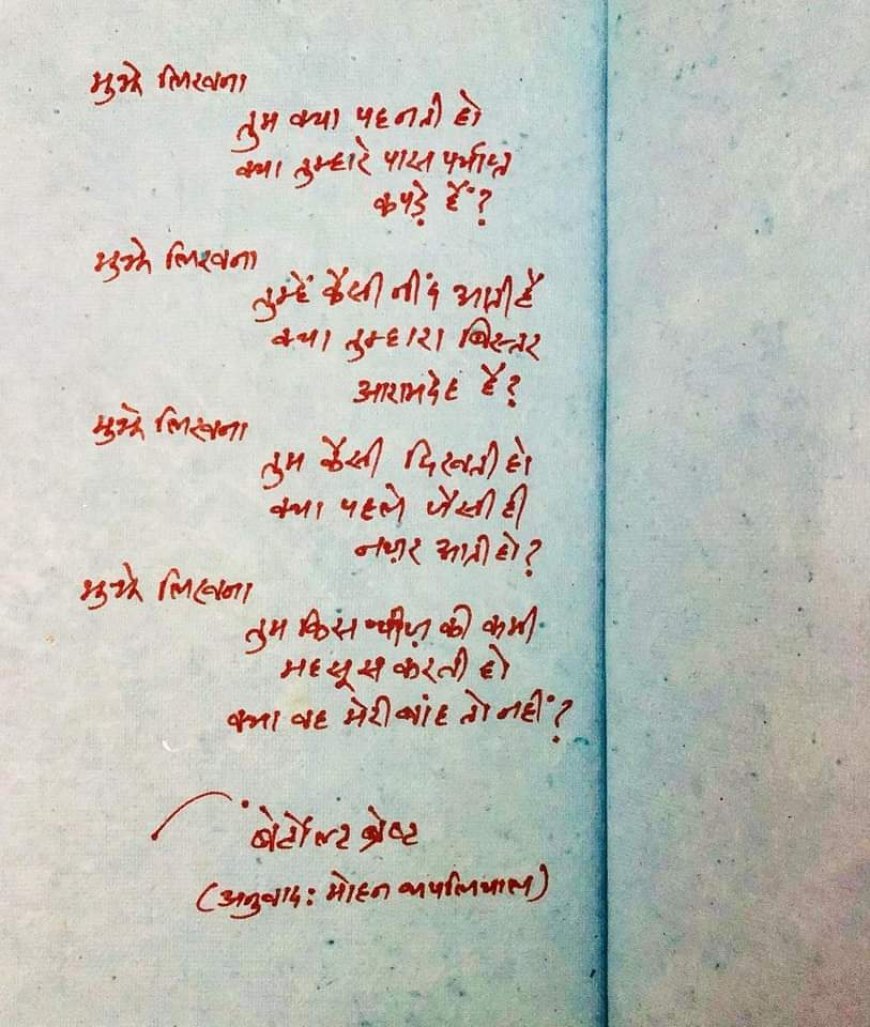 मुझे लिखना
तुम क्या पहनती हो
क्या तुम्हारे पास पर्याप्त
कपड़े हैं?
मुझे लिखना
तुम्हें कैसी नींद आती है
क्या तुम्हारा बिस्तर
आरामदेह है?
मुझे लिखना
तुम कैसी दिखती हो
क्या पहले जैसी ही
नज़र आती हो?
मुझे लिखना
तुम किस चीज़ की कमी
महसूस करती हो
क्या वह मेरी बांह तो नहीं?
बेर्टोल्ट ब्रेष्ट
(अनुवाद: मोहन थपलियाल)